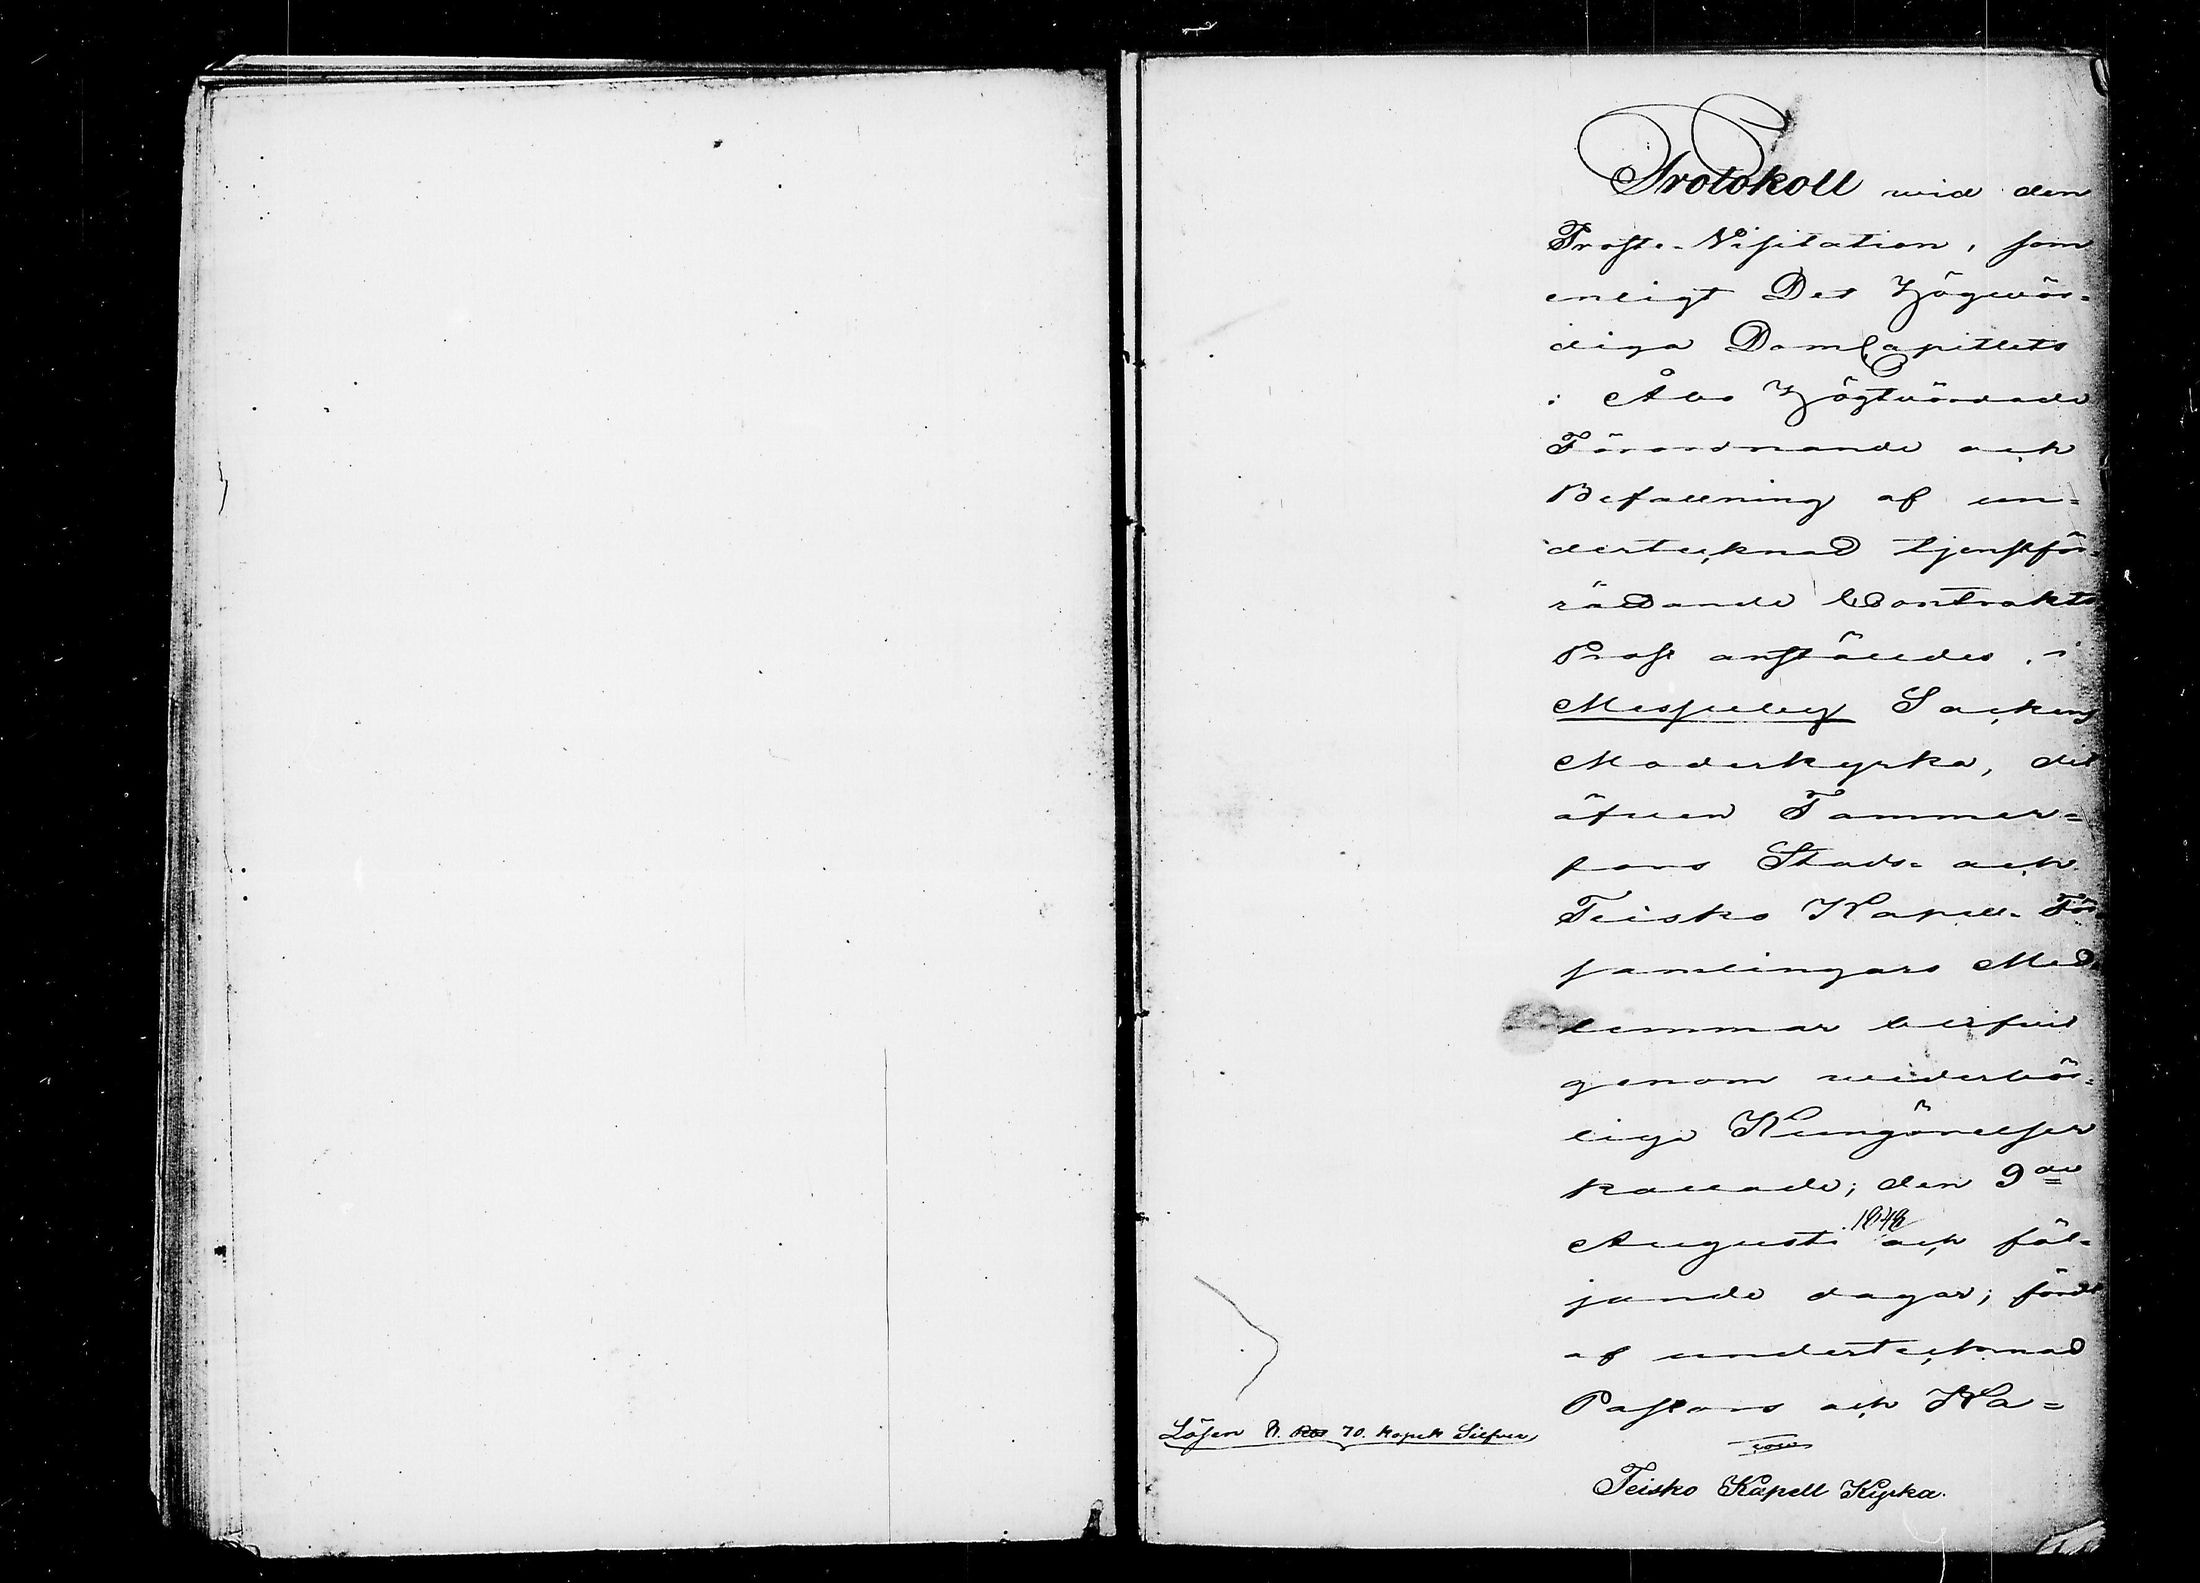 Protokoll wid den
Prosts-Visitation, som
enligt Det Högwör=
diga DomCapitlets
i Åbo Högtwördade
Förordnande och
Befallning af un=
dertecknad tjenstför=
rättande Contrakts
Prost anställdes i
Messuby Sockens
Moderkyrka, dit
äfwen Tammer=
fors Stads= och
Teisko Kapell-För
samlingars Med
lemmar blifwit
genom wederbör=
lige Kungörelser
kallade; den 9de
Augusti 1848 och föl=
jande dagar; fördt
af undertecknad
Pastors och Ka=
Lösen R. Rbl 70. kopek Silfver
Teisko Kapell Kyrka.